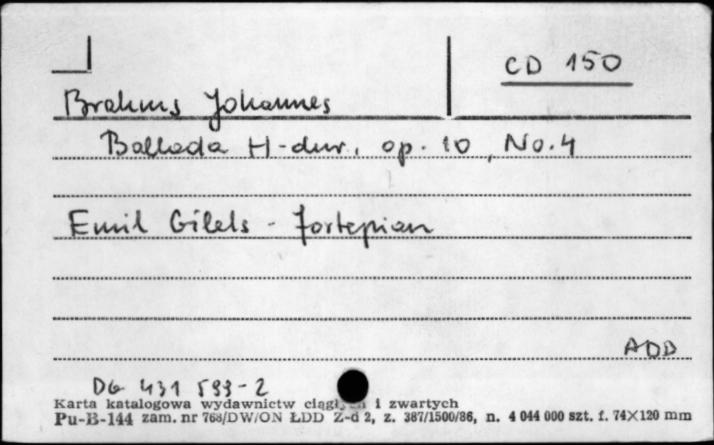 CD 150
Brahms Johannes
Ballada H-dur, op. 10, No. 4
Emil Gilels - fortepian
ADD
DG 431 599-2
Karta katalogowa wydawnictw i zwartych
Pu-B-144 zam. nr 768/DW/ON ŁDD Z-d 2, z. 387/1500/86, n. 4 044 000 szt. f. 74×120 mm